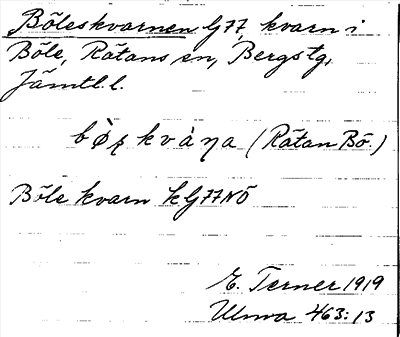 Böleskvarnen G77, kvarn i
Böle, Rätans sn, Bergs tg,
Jämtl.l.
bö̀ʂkvàɳa (Rätan Bö.)
Böle kvarn kG77NÖ
E. Terner 1919
Ulma 463:13